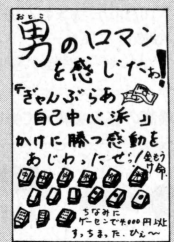 おとこ
男のロマン
を感じたわ!
『ぎゃんぶらあ
自己中心派』
かけに勝つ感動を
あじわったぜ!
ちなみに
ゲーセンで4,000円以上
すっちまった。ひえ〜